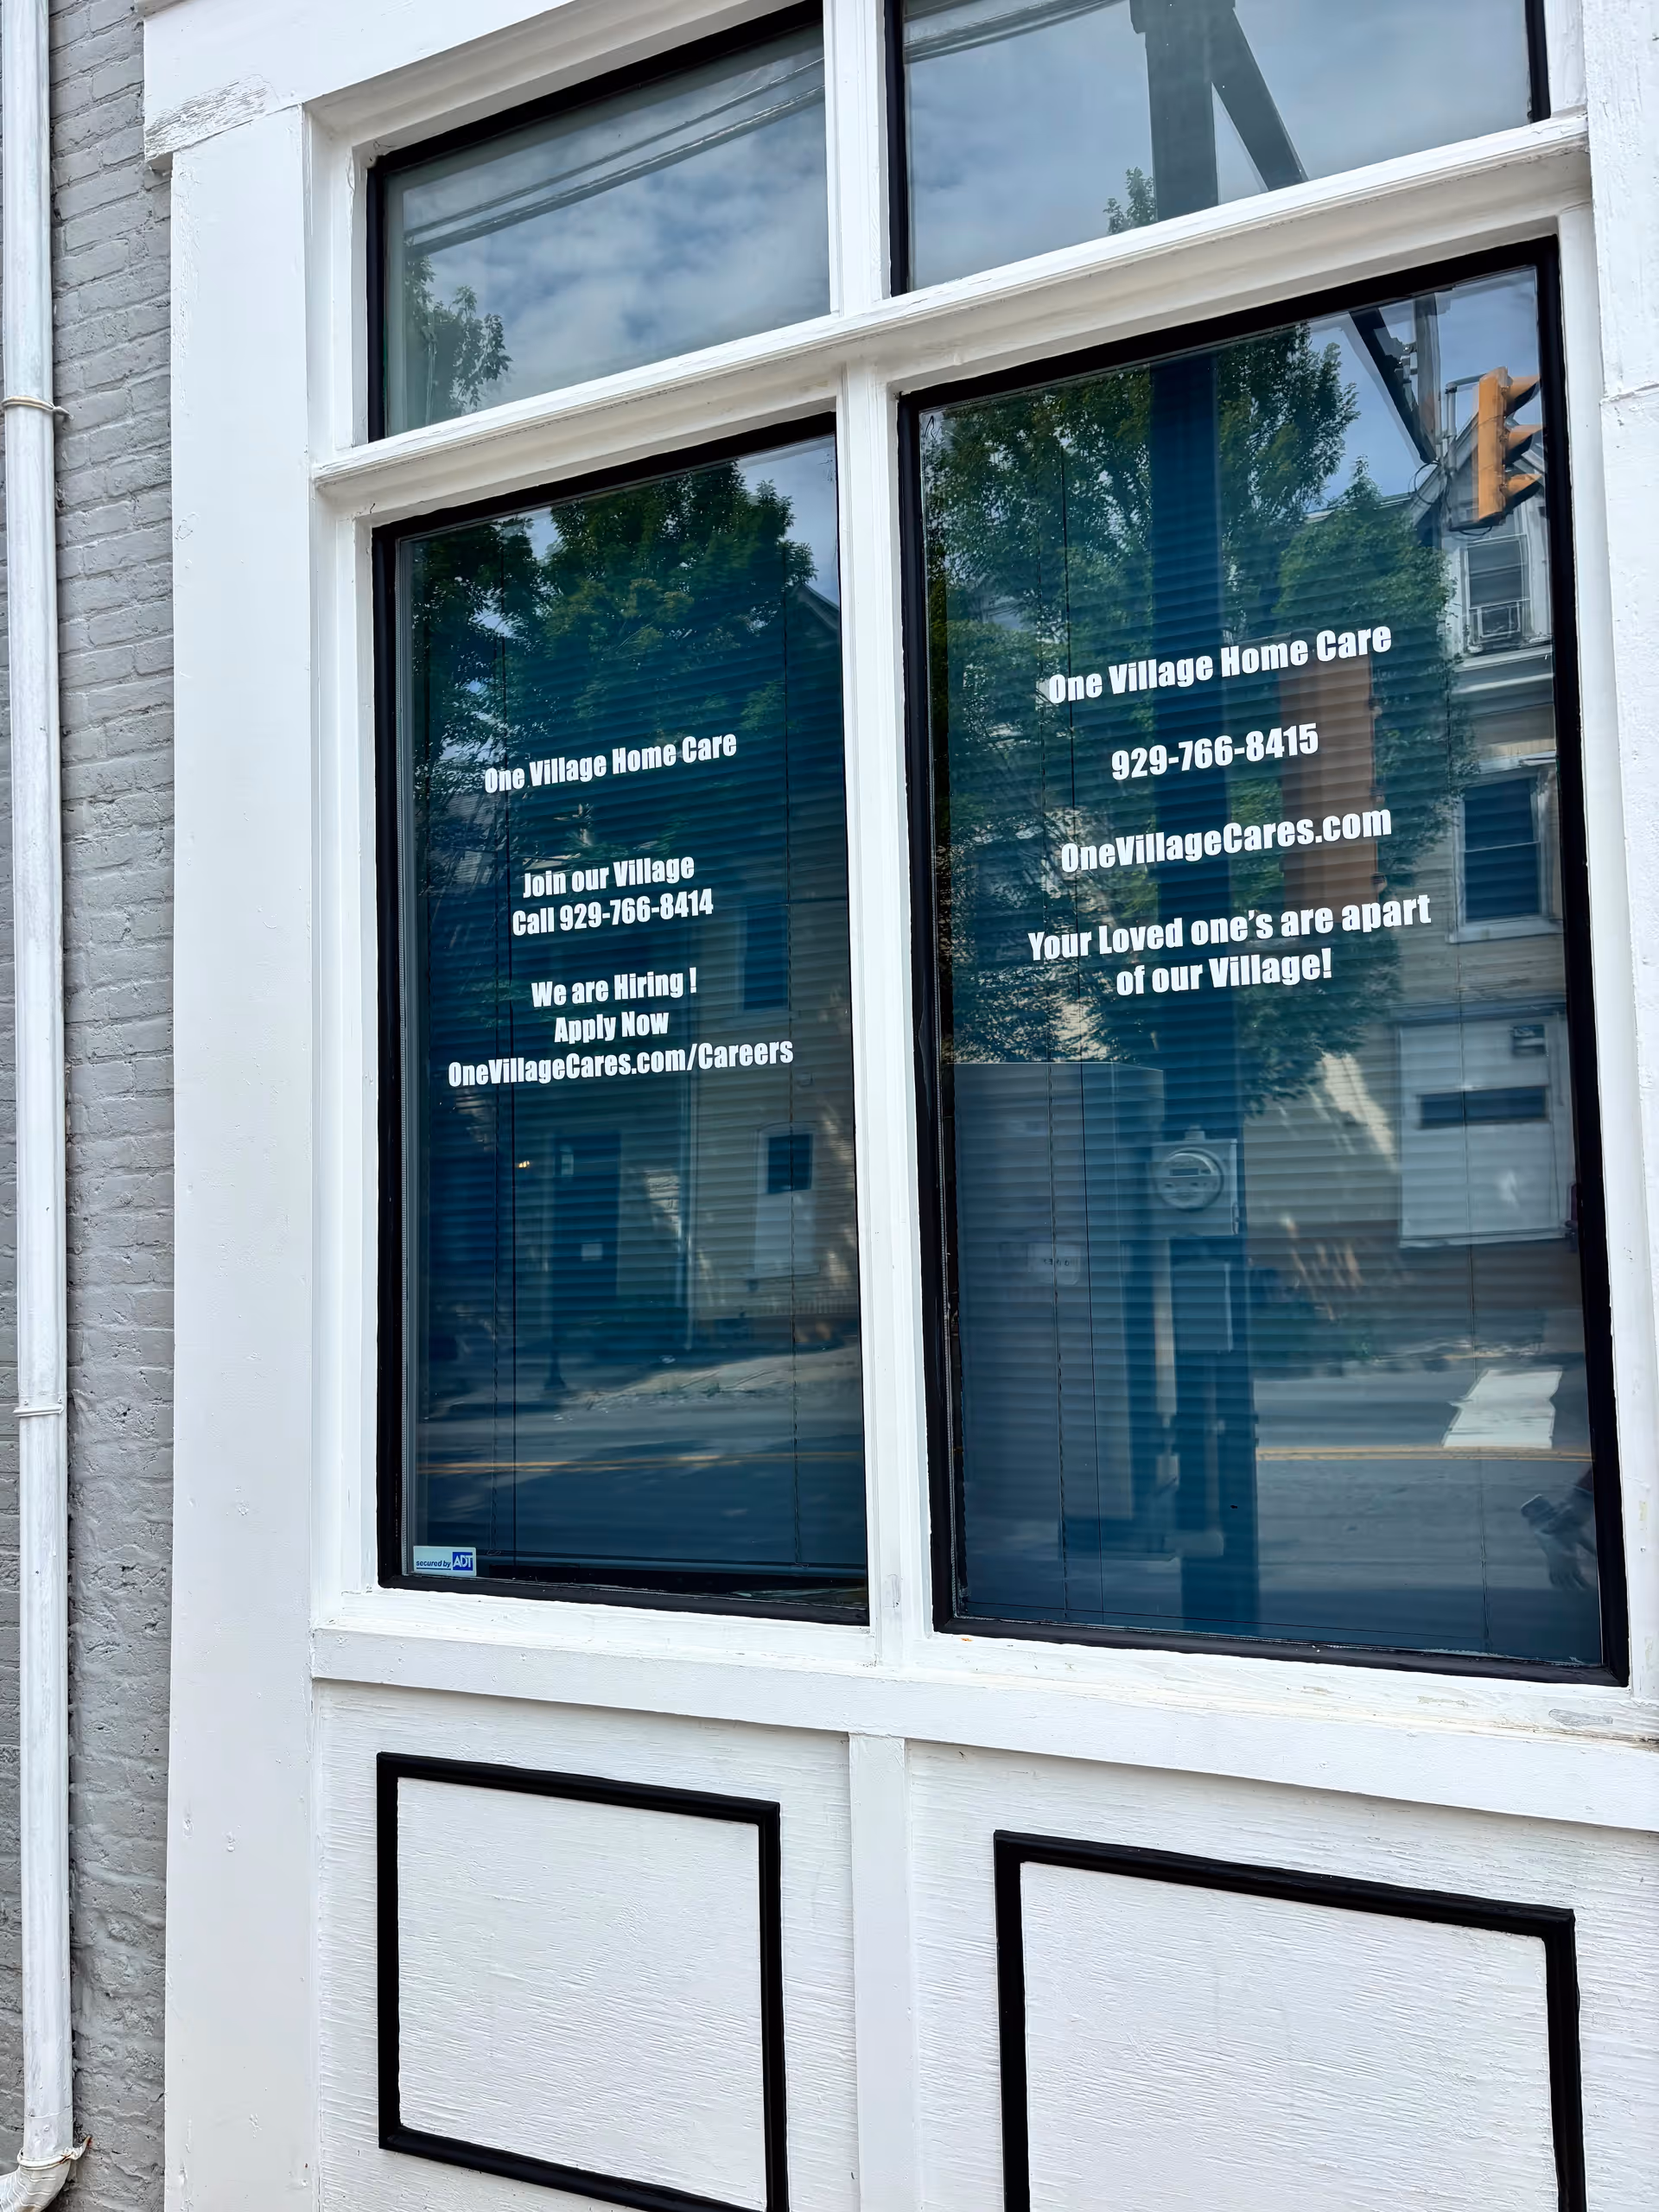 One Village Home Care
Join our Village
Call 929-766-8414
We are Hiring !
Apply Now
OneVillageCares.com/Careers
secured by ADT
One Village Home Care
929-766-8415
OneVillageCares.com
Your Loved one’s are apart
of our Village!